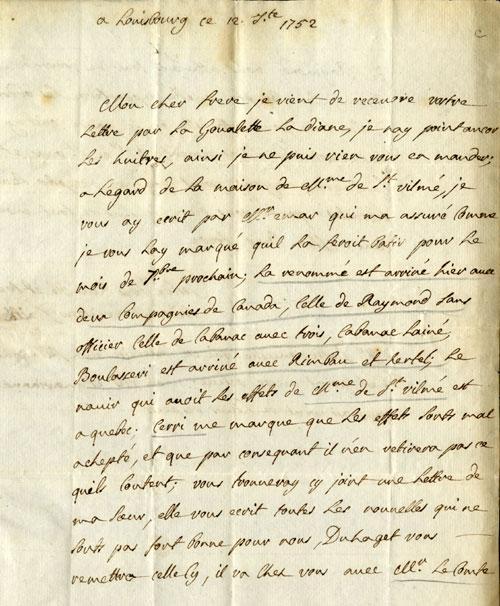 a Louisbourg ce 12 7bre 1752
Mon cher frere je vient de recevoir vostre
Lettre par la Gouallette La diane, je nay point ancor
Les huitres, ainsi je ne puis rien vous en mander;
a Légard de La maison de Mme de St vilmé, je
vous ay ecrit par Mr emar qui ma assuré comme
je vous lay marqué quil La feroit batir pour Le
mois de 7bre prochain; La renommé est arrivé hier avec
deux Compagnies de Canada, Celle de Raymond sans
officier Celle de Cabanac avec trois, Cabanac Lainé,
Boulasceri est arrivé avec Rimbau et hertel; Le
navir qui avoit les effets de Mme de St vilmé est
a quebec. Cerri me marque que Les effets sonts mal
achepté, et que par consequant il n'en retirera pas ce
quils Coutent; vous trouveray cy joint une Lettre de
ma sœur, elle vous ecrit toutes Les nouvelles qui ne
sonts pas fort bonne pour nous, Duhaget vous
remettra celle Cy, il va Chés vous avec Mr Le Comte